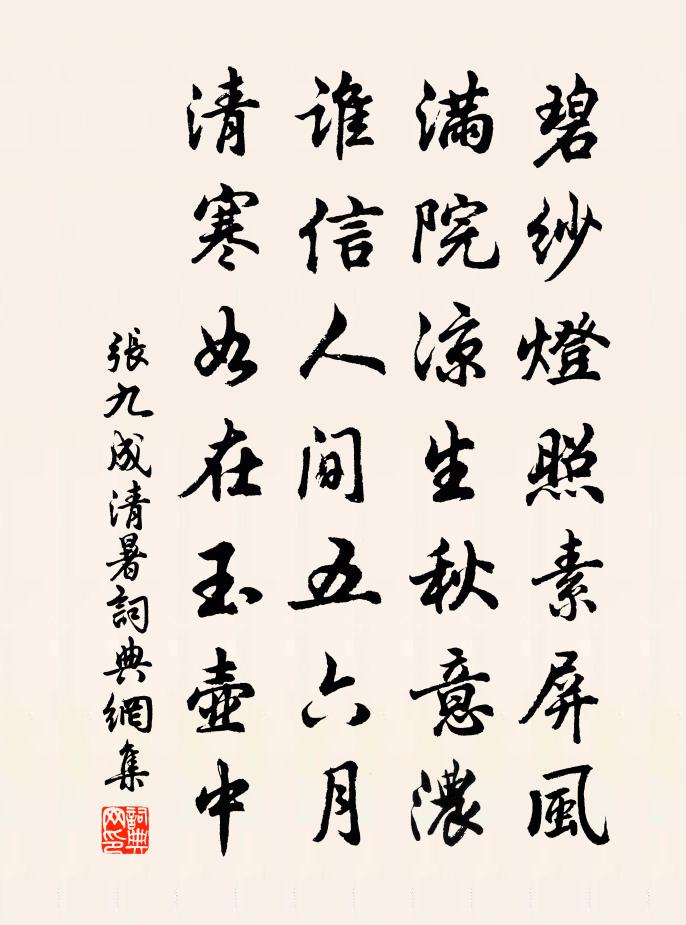 碧紗燈照素屏風
滿院涼生秋意濃
誰信人间五六月
清寒如在玉壺中
張九成清暑詞典網集
詞典网印